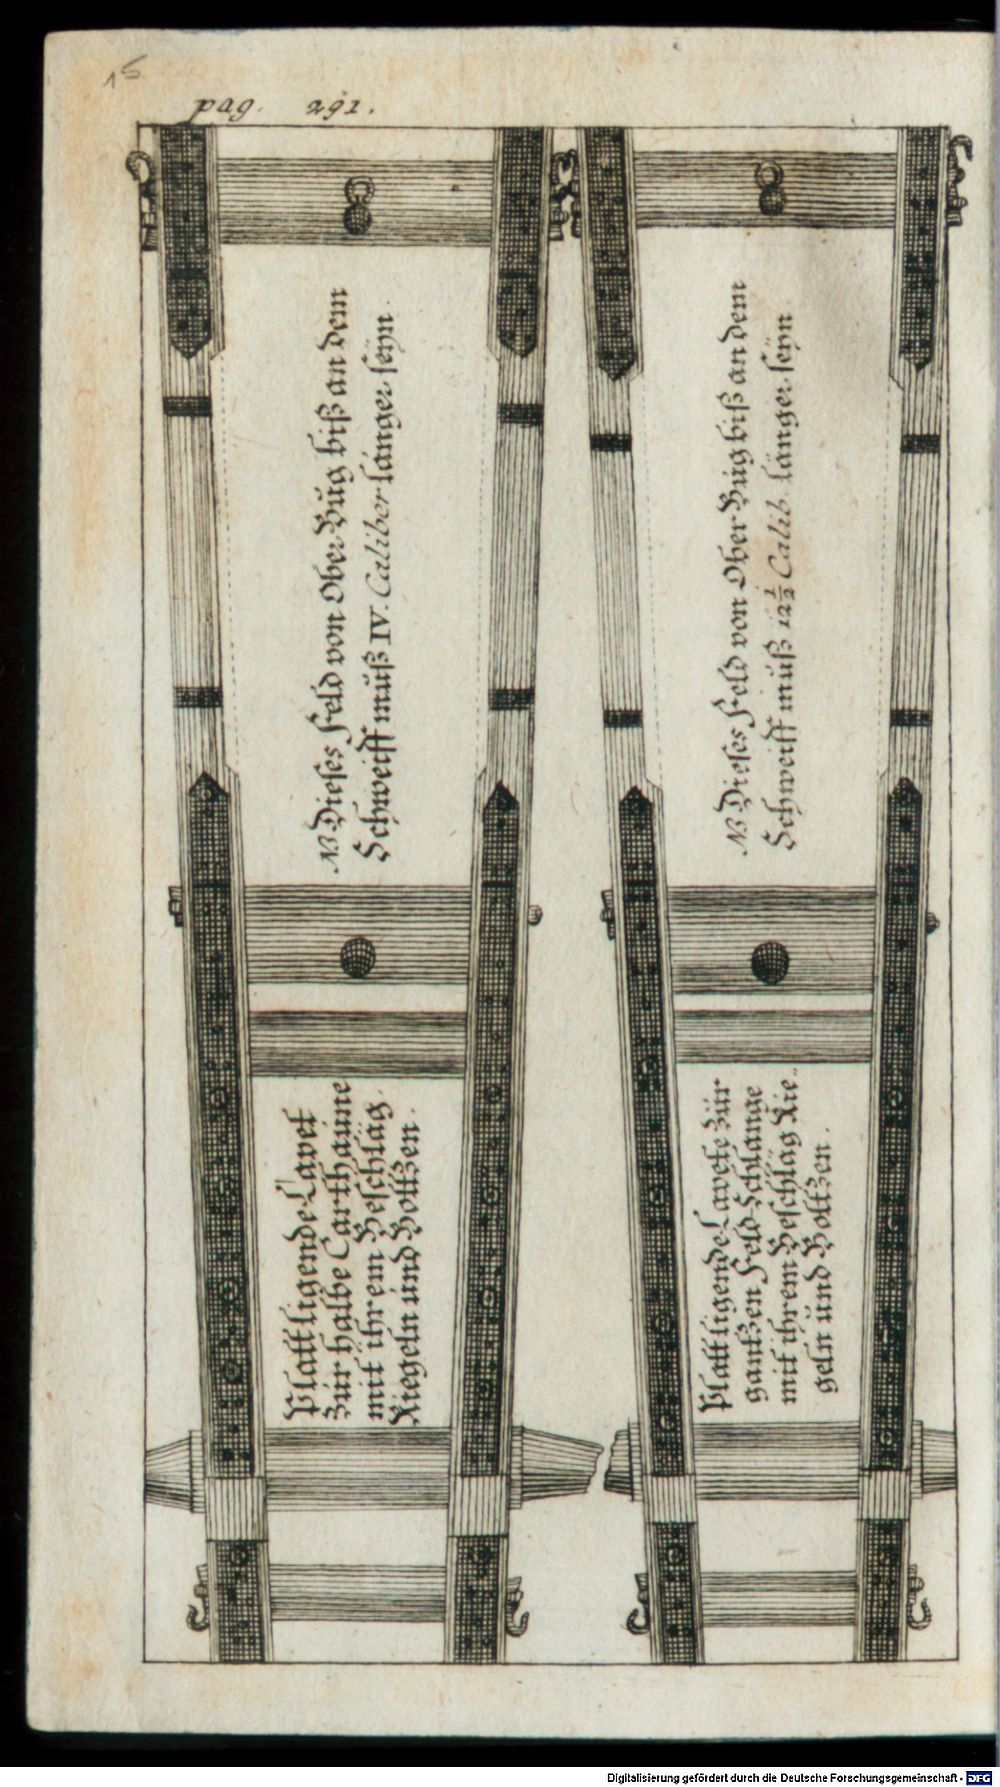 15
pag. 291.
NB Dieses Feld von Ober Bug biß an dem
Schweiff muß IV. Caliber länger seÿn.
NB Dieses Feld von Ober Bug biß an dem
Schweiff muß 12½ Calib. länger seÿn.
Plattligende Lavet
Zur halbe Carthaune
mit ihrem Beschläg.
Riegeln und Boltzen.
Plattligende Lavete Zur
gantzen Feld-Schlange
mit ihrem Beschläg Rie-
geln und Boltzen.
Digitalisierung gefördert durch die Deutsche Forschungsgemeinschaft - DFG